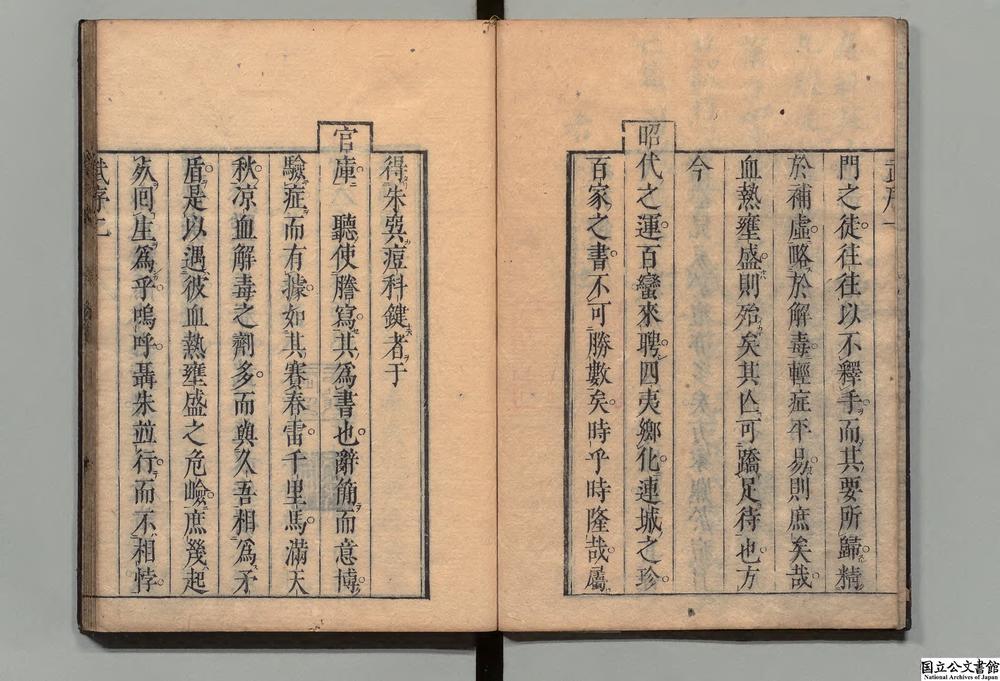 門之徒往往以不釋手而其要所歸精
於補虛略於解毒輕症平易則庶矣哉
血熱壅盛則殆矣其亾可蹻足待也方
今
昭代之運百蠻來聘四夷鄉化連城之珍
百家之書不可勝數矣時乎時隆哉屬
得朱巽痘科鍵者于
官庫聽使謄寫其爲書也辭簡而意博
驗症而有據如其賽春雷千里馬滿天
秋凉血解毒之劑多而與久吾相爲矛
盾是以遇彼血熱壅盛之危嶮庶幾起
回生爲乎嗚呼聶朱並行而不相悖
序二
国立公文書館
National Archives of Japan